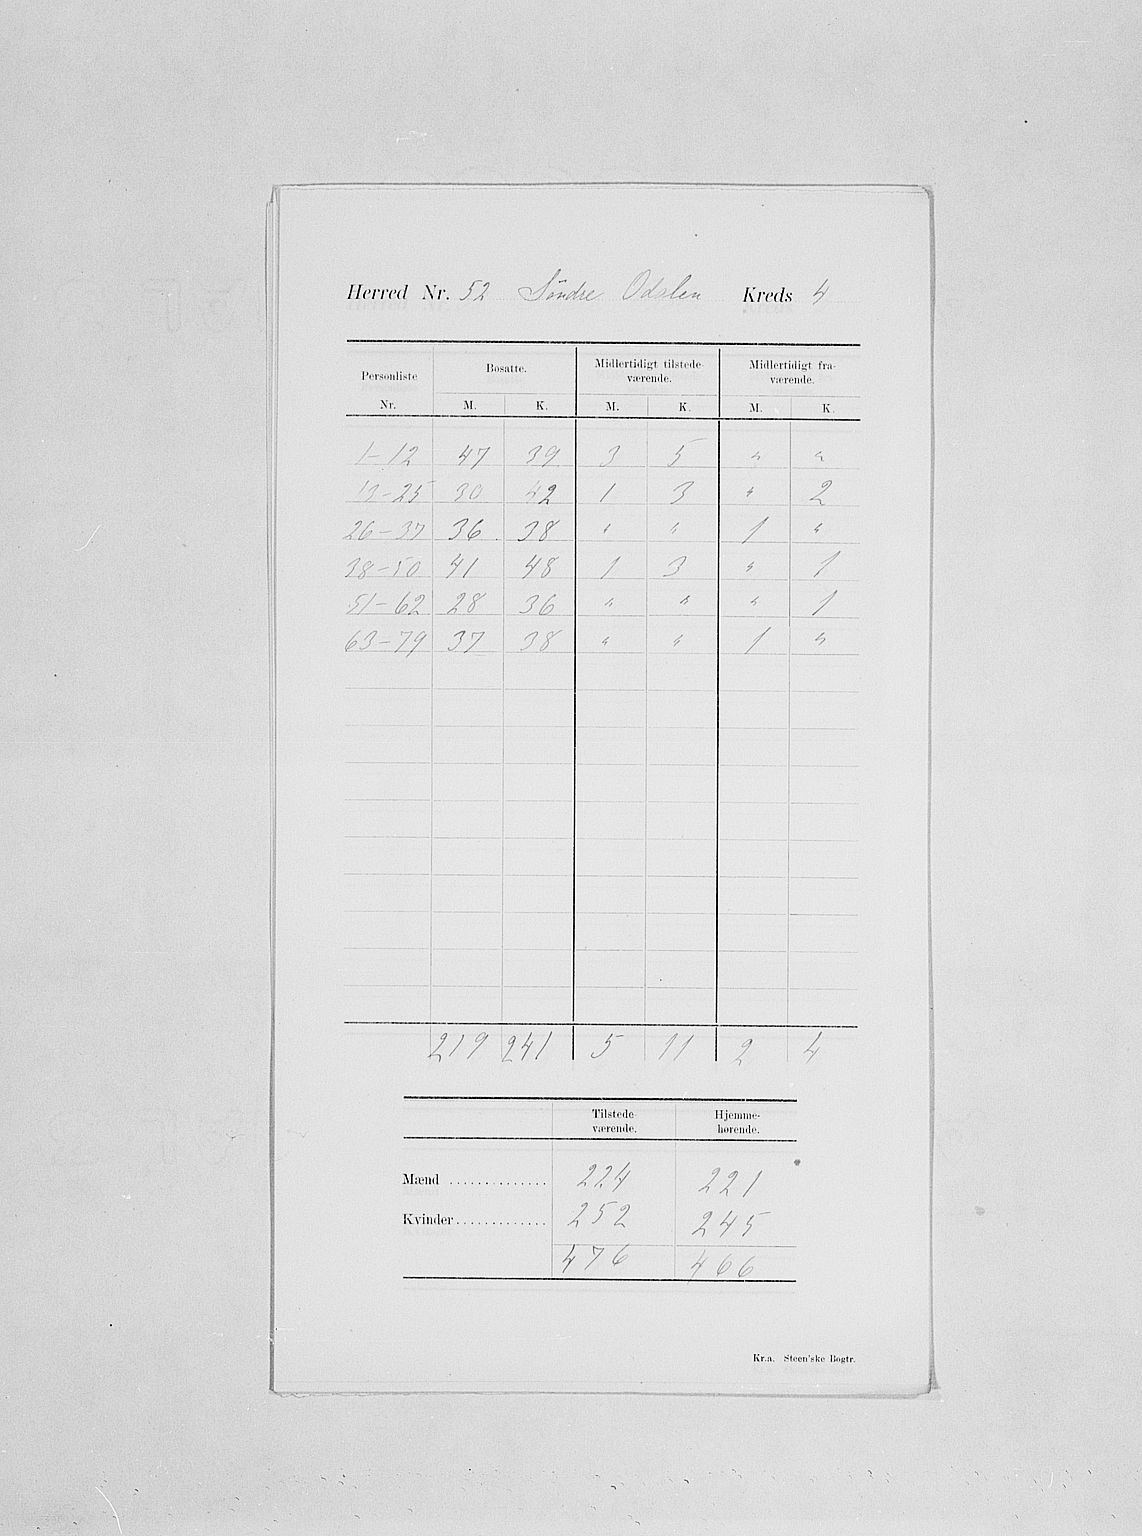 Herred Nr. 52 Søndre Odalen Kreds 4
Personliste Nr. Bosatte. Midlertidigt tilstede- værende. Midlertidigt fra- værende.
M. K. M. K. M. K.
1-12 47 39 3 5 " "
13-25 30 42 1 3 " 2
26-37 36 38 " " 1 "
38-50 41 48 1 3 " 1
51-62 28 36 " " " 1
63-79 37 38 " " 1 "
219 241 5 11 2 4
Tilstede- værende. Hjemme- hørende.
Mænd .............. 224 221
Kvinder ............. 252 245
476 466
Kr.a. Steen'ske Bogtr.